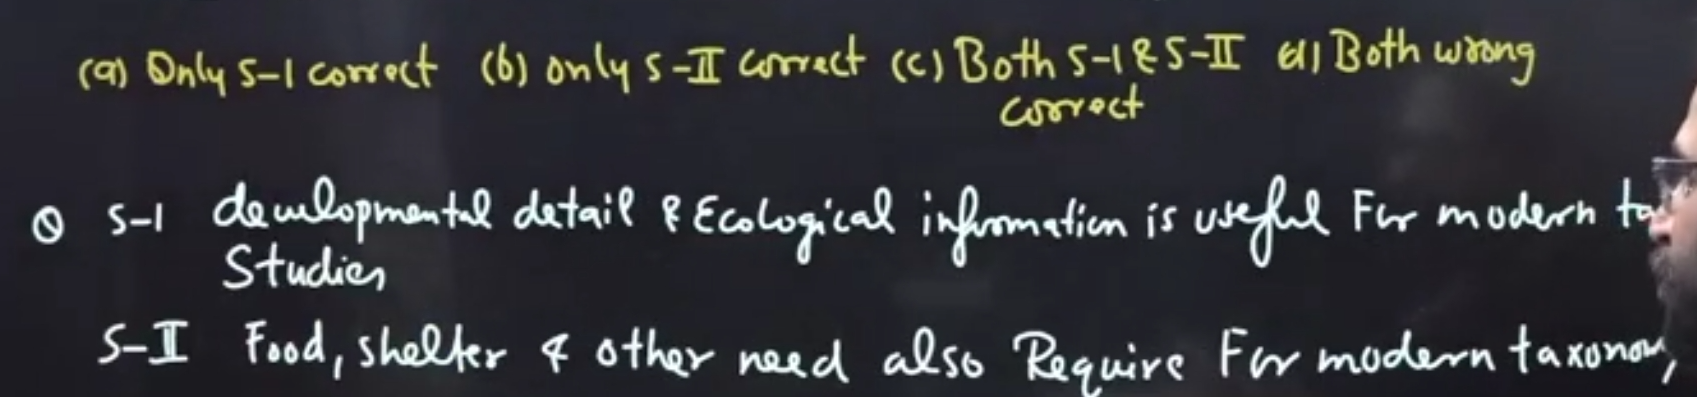 (a) Only S-I correct (b) only S-II correct (c) Both S-I & S-II (d) Both wrong
correct
Q S-I developmental detail & Ecological information is useful For modern
Studies
S-II Food, shelter & other need also Require For modern